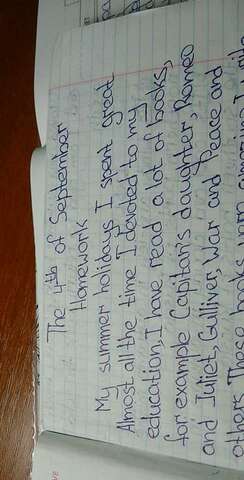 The 4th of September
Homework
My summer holidays I spent great
Almost all the time I devoted to my
education, I have read a lot of books,
for example Capitan's daughter, Romeo
and Juliet, Gulliver, War and Peace and
others. These books